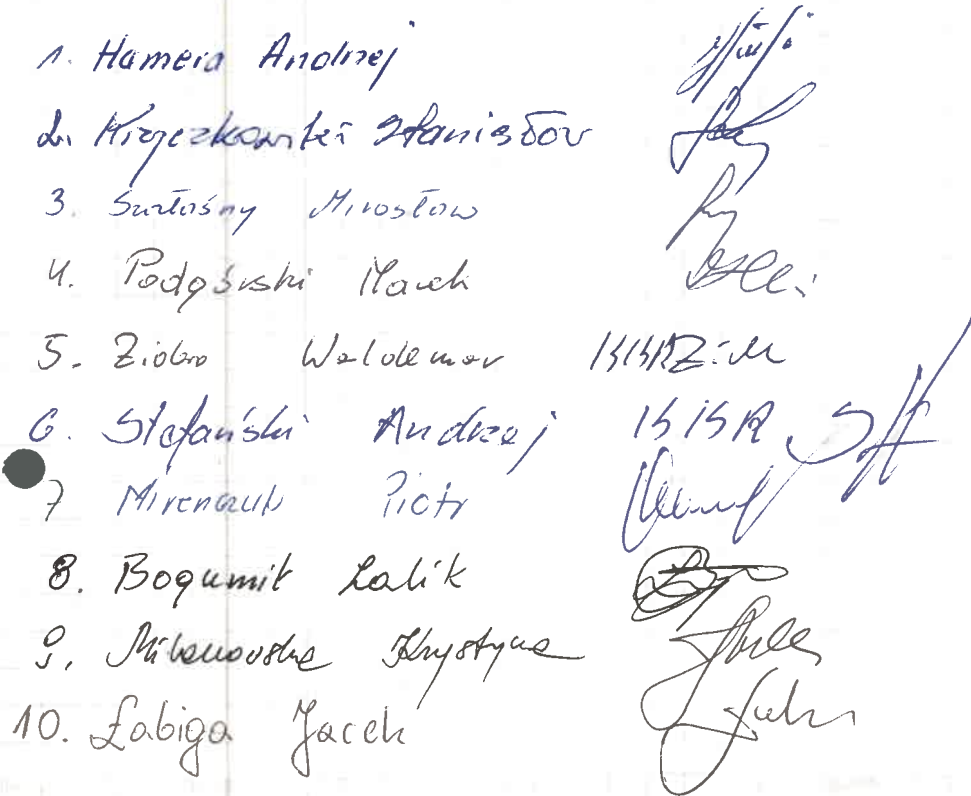 1. Hamera Andrzej
2. Krzyczkowski Stanisław
3. Mirosław
4. Podgórski Marek
5. Ziobro Waldemar KKRZiM
6. Stefański Andrzej KKR
7 Mirenczuk Piotr
8. Bogumił Łalik
9. Milanowska Krystyna
10. Łabiga Jacek